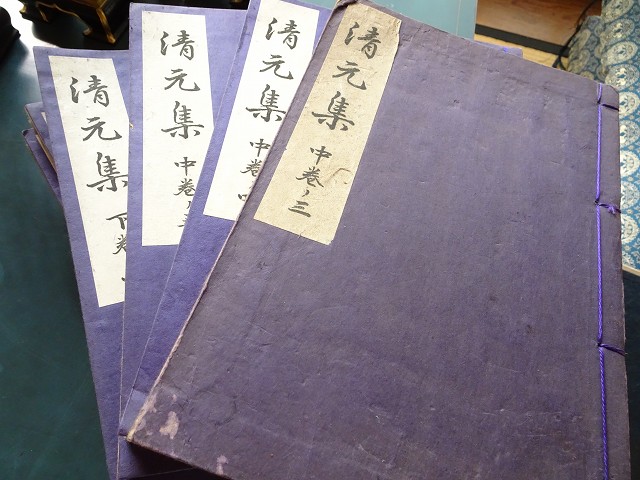 清元集 中巻ノ三
清元集 中巻ノ四
清元集 中巻ノ五
清元集 下巻